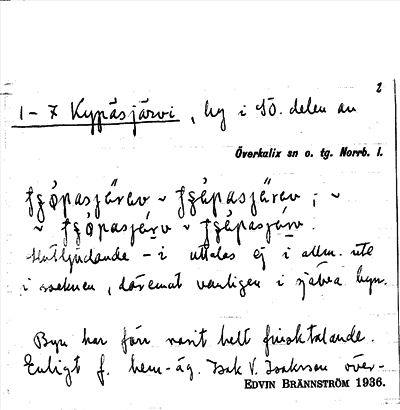 2
1-7 Kypåsjärvi, by i SO. delen av
Överkalix sn o. tg. Norrb. l.
~
~
Slutljudande -i uttalas ej i allm. ute
i socknen, däremot vanligen i själva byn.
Byn har förr varit helt finsktalande.
Enligt f. hem.-äg. Isak V. Isaksson över-
EDVIN BRÄNNSTRÖM 1936.